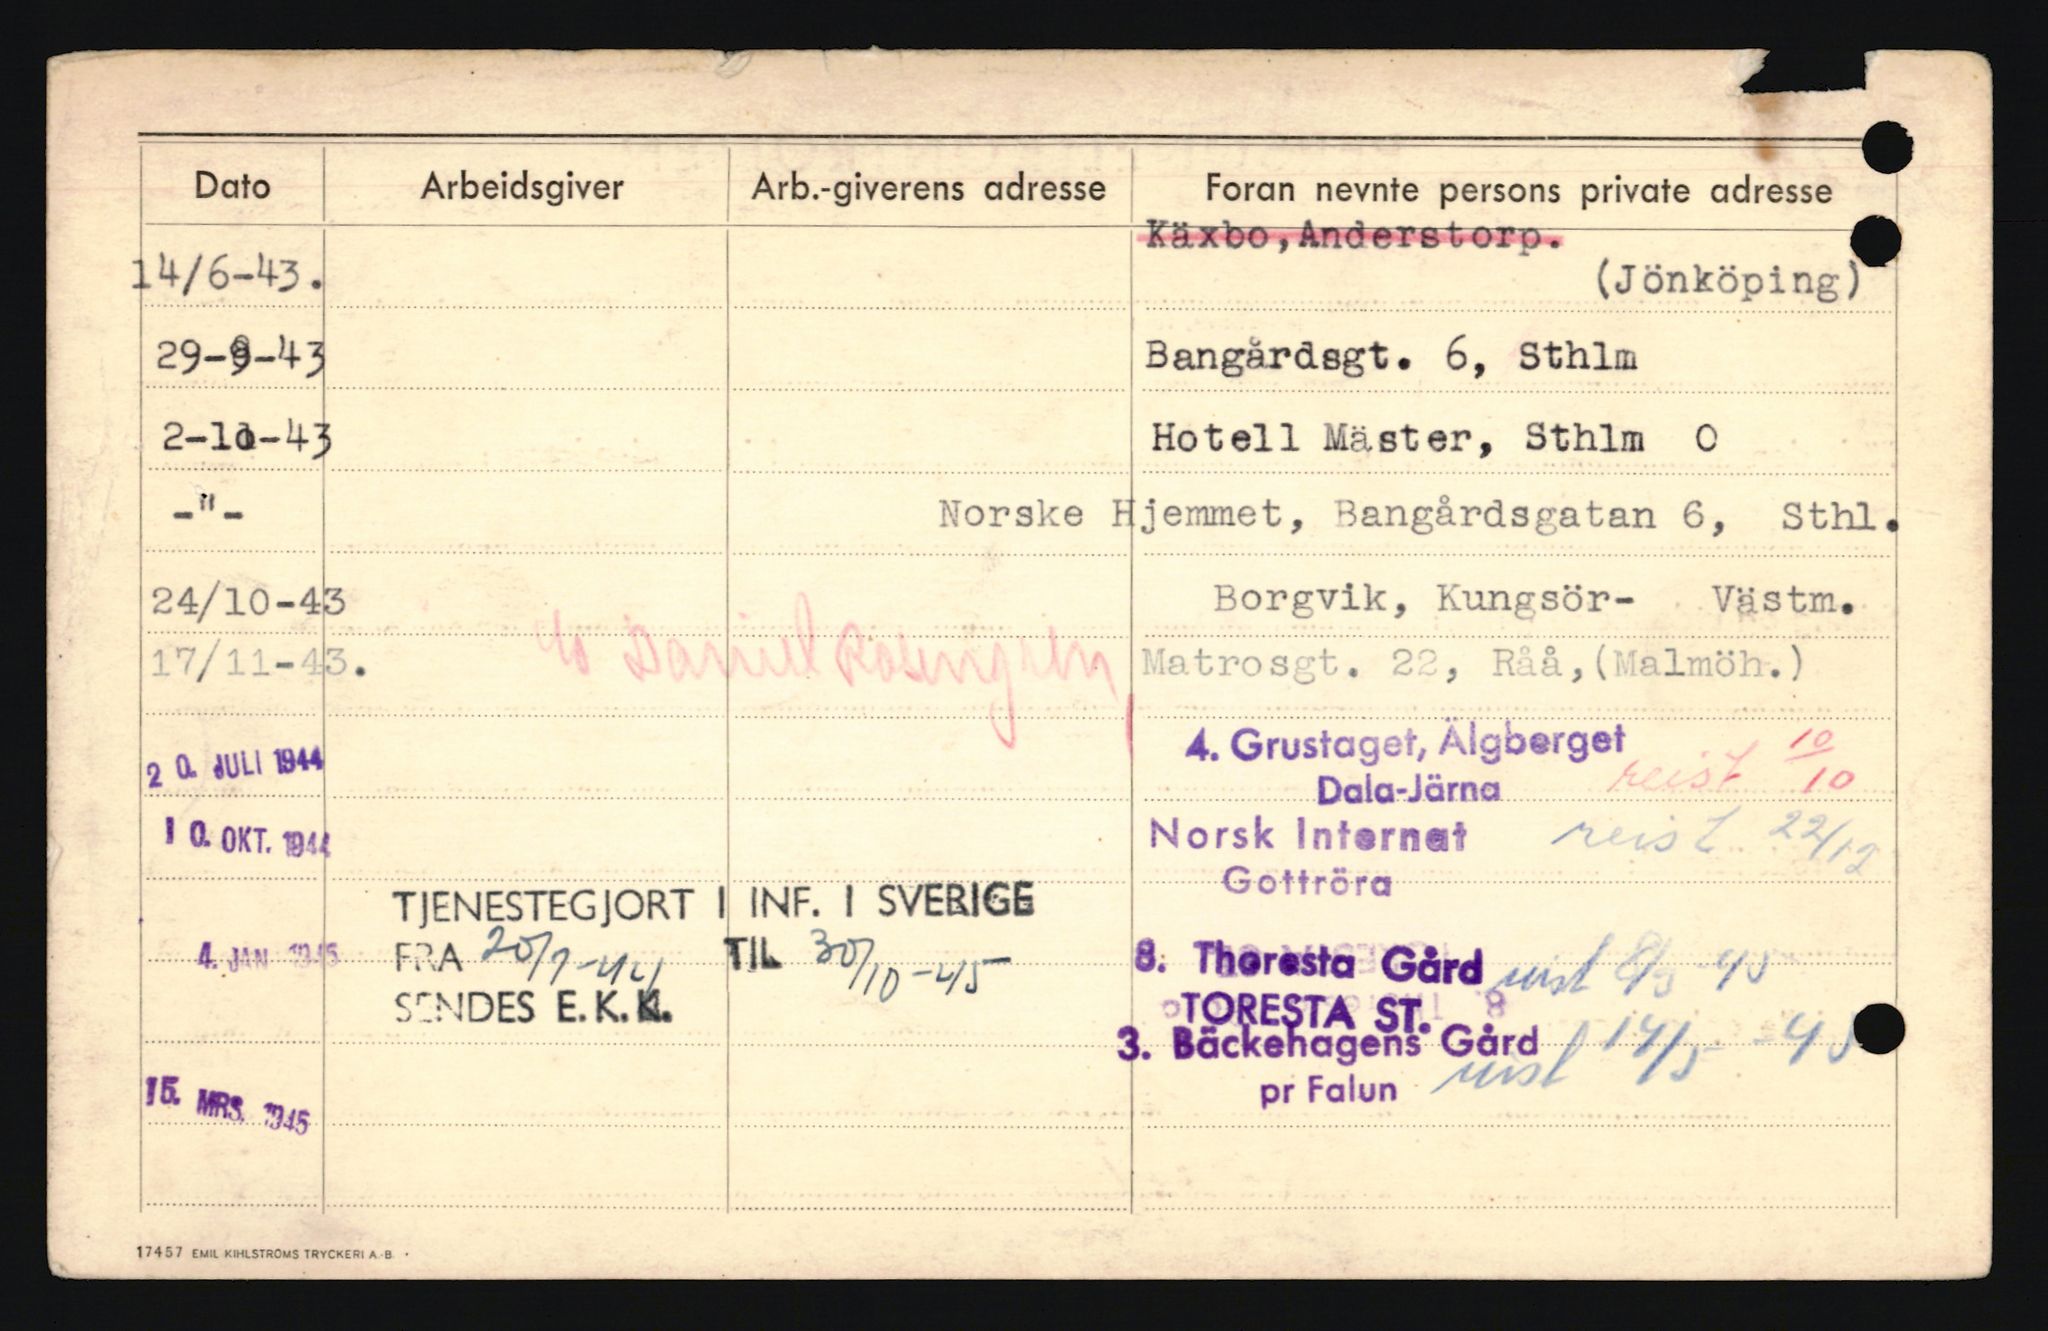 Dato Arbeidsgiver Arb.-giverens adresse Foran nevnte persons private adresse
Käxbo, Anderstorp.
14/6-43. (Jönköping)
29-9-43 Bangårdsgt. 6, Sthlm
2-10-43 Hotell Mäster, Sthlm O
-"- Norske Hjemmet, Bangårdsgatan 6, Sthl.
24/10-43 Borgvik, Kungsör- Västm.
c/o Daniel Rosengren,
17/11-43. Matrosgt. 22, Råå, (Malmöh.)
4. Grustaget, Älgberget
20. JULI 1944 Dala-Järna reist 10/10
10. OKT. 1944 Norsk Internat reist 22/12
Gottröra
TJENESTEGJORT I INF. I SVERIGE
4. JAN 1945 FRA 20/7-44 TIL 30/10-45 8. Thoresta Gård reist 8/3-45
SENDES E.K.K. TORESTA ST.
3. Bäckehagens Gård reist 14/5-45
15. MRS. 1945 pr Falun
17457 EMIL KIHLSTRÖMS TRYCKERI A.-B.